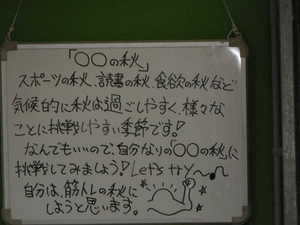 「〇〇の秋」
スポーツの秋、読書の秋、食欲の秋など
気候的に秋は過ごしやすく、様々な
ことに挑戦しやすい季節です!
なんでもいいので、自分なりの「〇〇の秋」に
挑戦してみましょう! Let's try
自分は、筋トレの秋に
しようと思います。